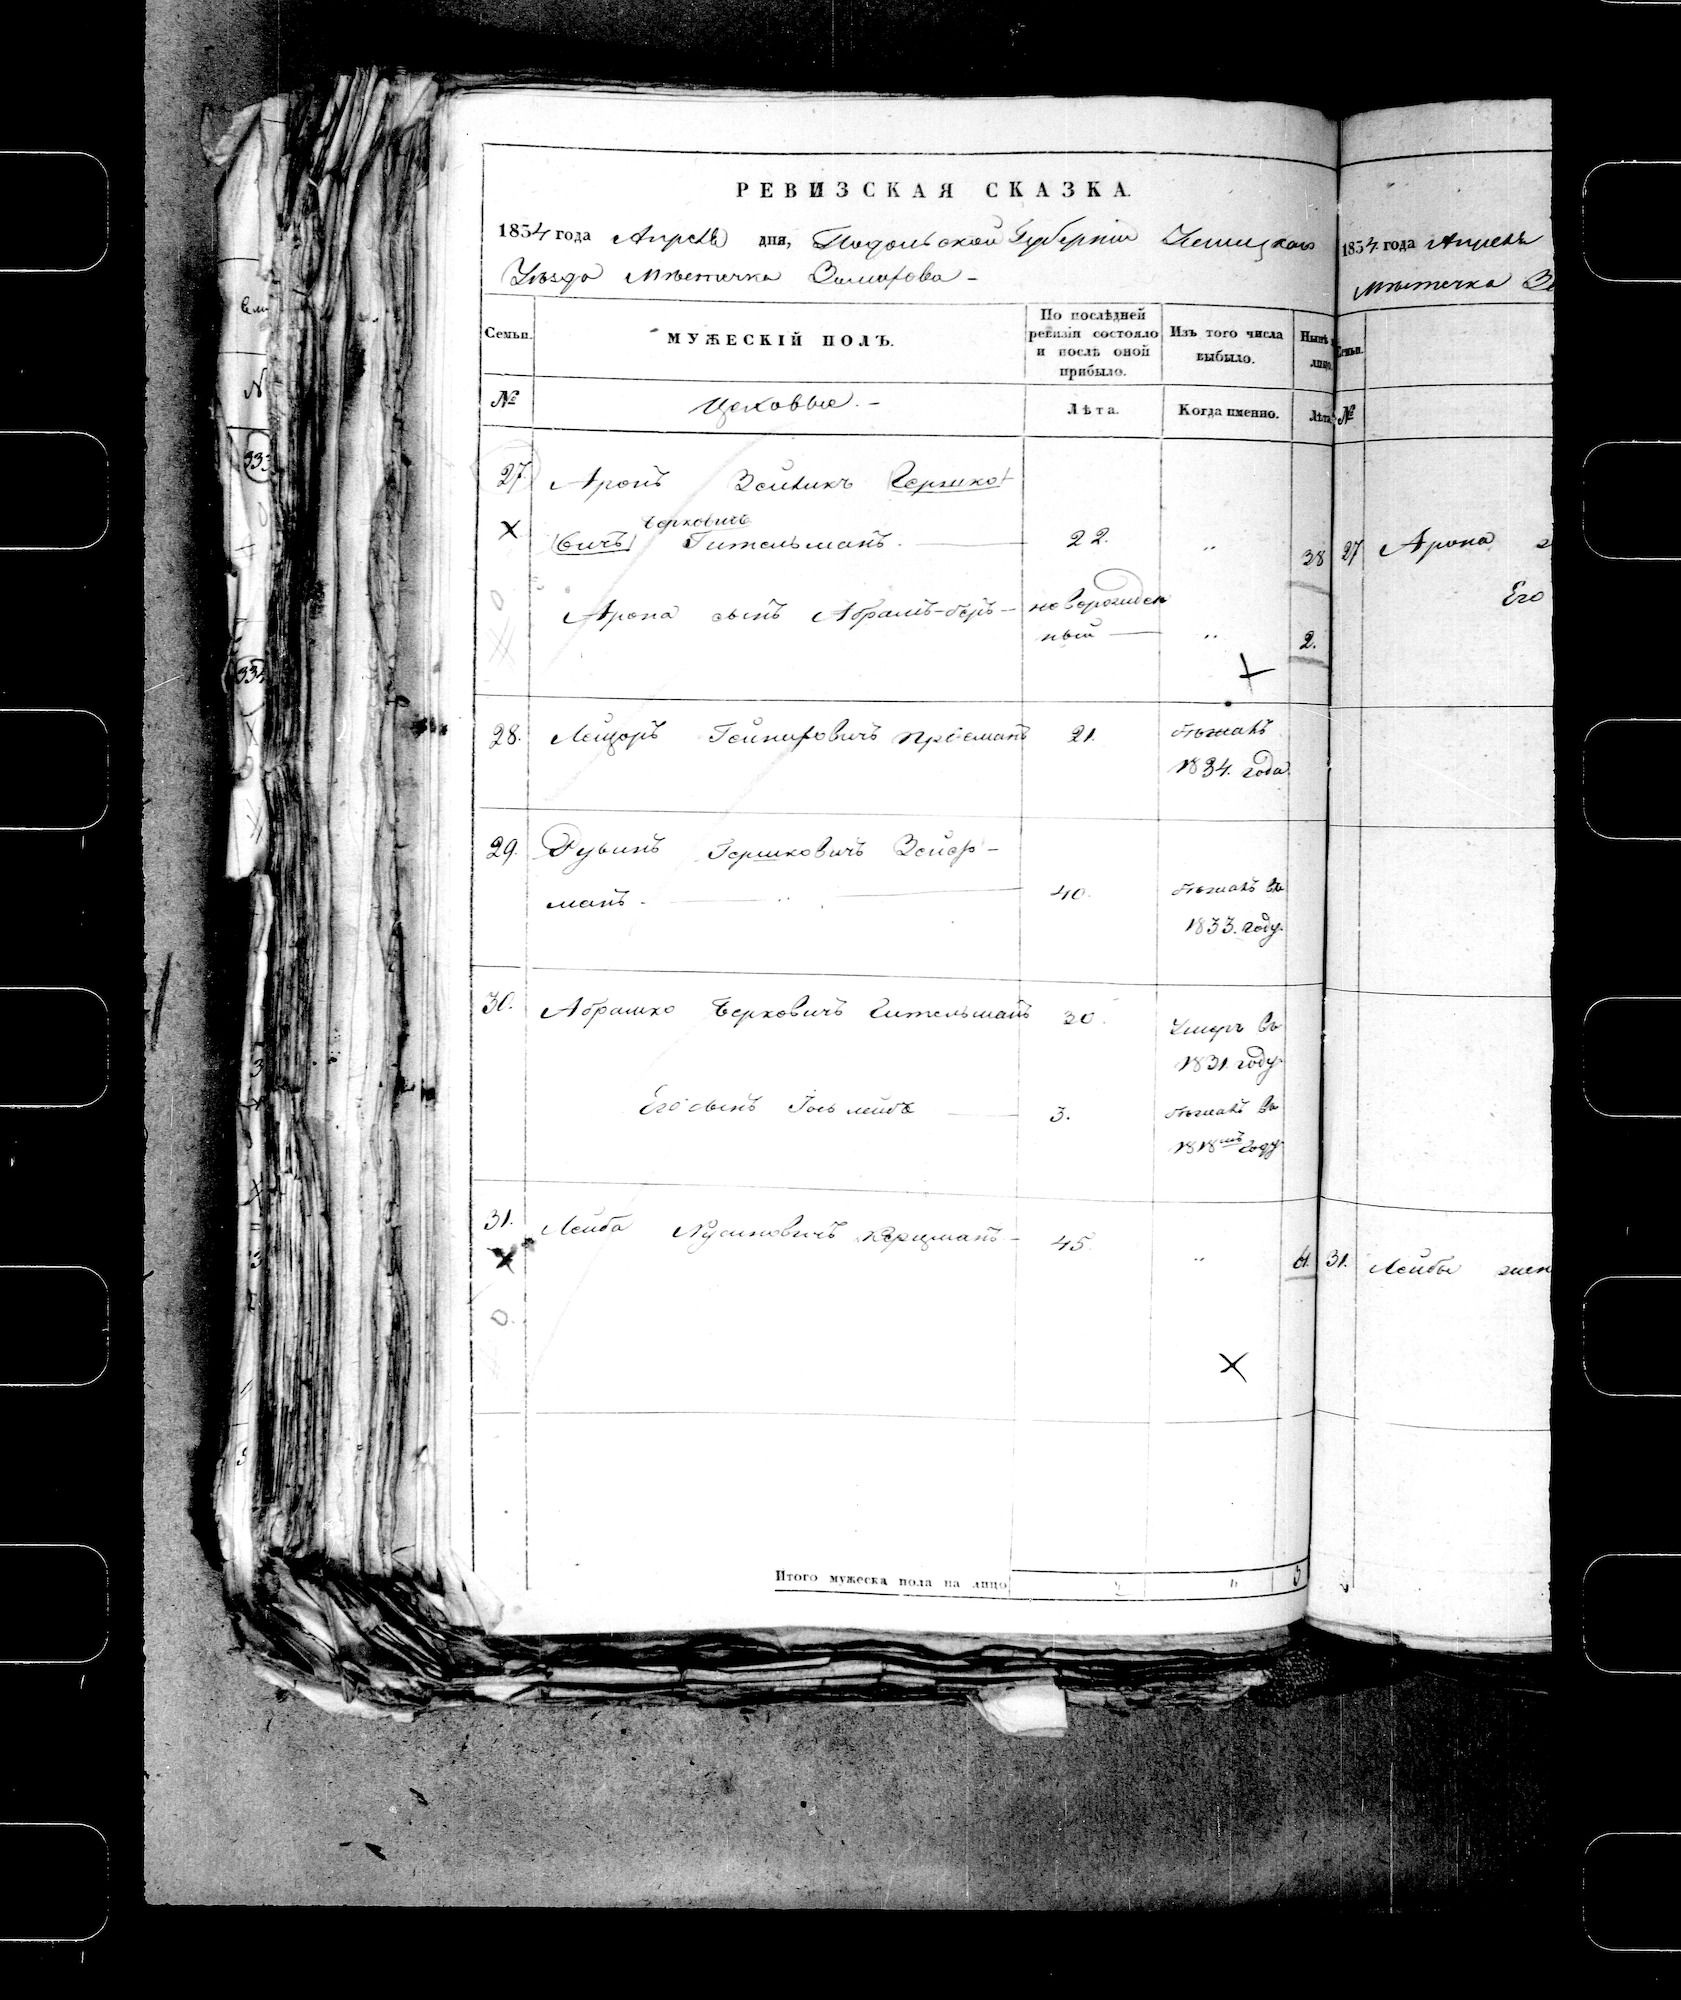 РЕВИЗСКАЯ СКАЗКА.
1854 года Апреля дня, Подольской Губерніи Ушицкого
Уѣзда Мѣстечка Замѣхова -
Семьи.
МУЖЕСКІЙ ПОЛЪ.
По послѣдней
ревизіи состояло
и послѣ оной
прибыло.
Изъ того числа
выбыло.
Нынѣ
лицо.
№
Цеховые. -
Лѣта.
Когда именно.
Лѣта
27. Аронъ Зейликъ Гершко
вичъ Берковичъ Гительманъ. 22. 38
Арона сынъ Абрамъ-беръ - новорожден
ный 2.
28. Гейниховичъ 21. бѣжалъ
1834. года
29. Рувинъ Гершковичъ Зейф-
манъ. 40. бѣжалъ въ
1833. году.
30. Абрамко Берковичъ Гительманъ 30. Умеръ въ
1831 году
Его сынъ Іось лейбъ 3. бѣжалъ въ
1818мъ году
31. Лейба Нусиновичъ Керцманъ - 45. 61.
Итого мужеска пола на лицо 3
1854 года Апреля
Мѣстечка
Семьи.
№
27 Арона
Его
31. Лейбы жен